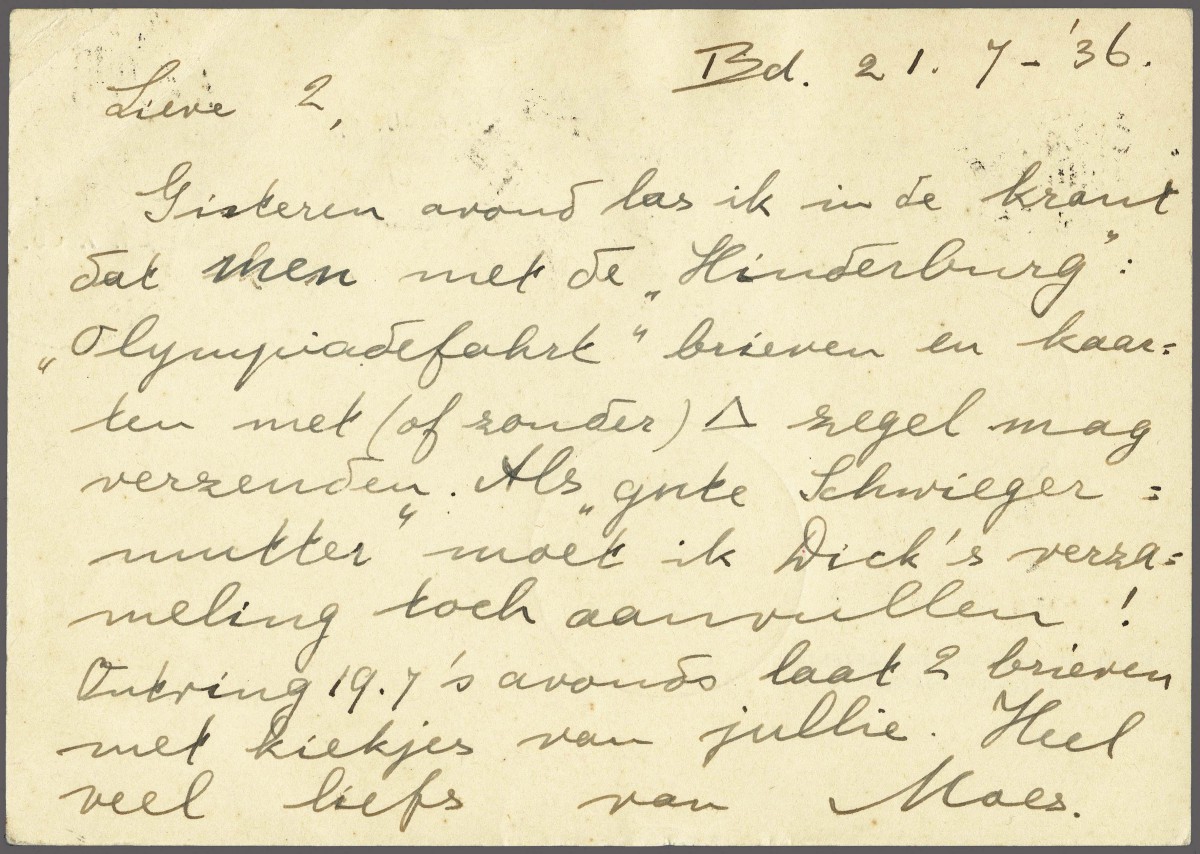 Bd. 21. 7 - '36.
Lieve 2,
Gisteren avond las ik in de krant
dat men met de „Hinderburg":
„Olympiadefahrt" brieven en kaar=
ten met (of zonder) △ zegel mag
verzenden. Als „gute Schwieger=
mutter" moet ik Dick's verza=
meling toch aanvullen!
Ontving 19.7 's avonds laat 2 brieven
met kiekjes van jullie. Heel
veel liefs van Moes.